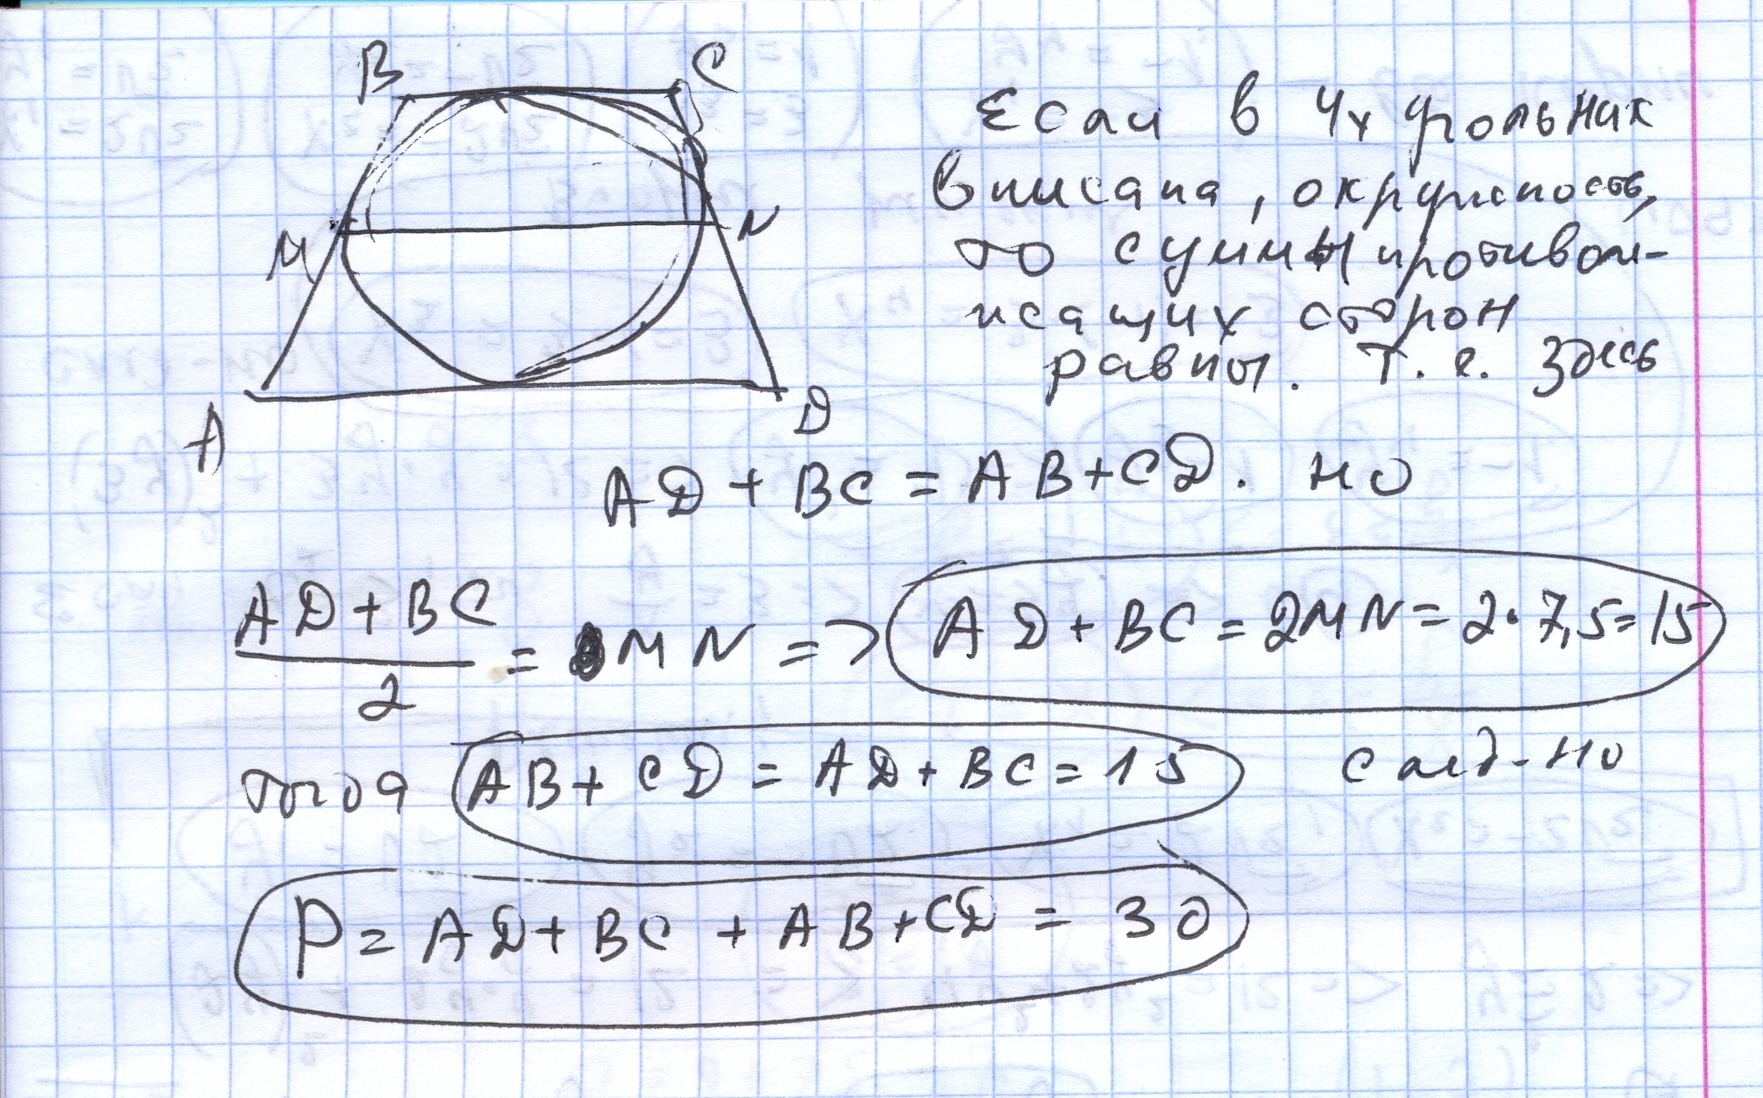 B C
M N
A D
Если в 4х угольник
вписана, окружность,
то суммы противол-
жащих сторон
равны. Т. е. Здесь
AD + BC = AB + CD. но
(AD + BC)/2 = MN => AD + BC = 2MN = 2·7,5 = 15
тогда AB + CD = AD + BC = 15 след-но
P = AD + BC + AB + CD = 30